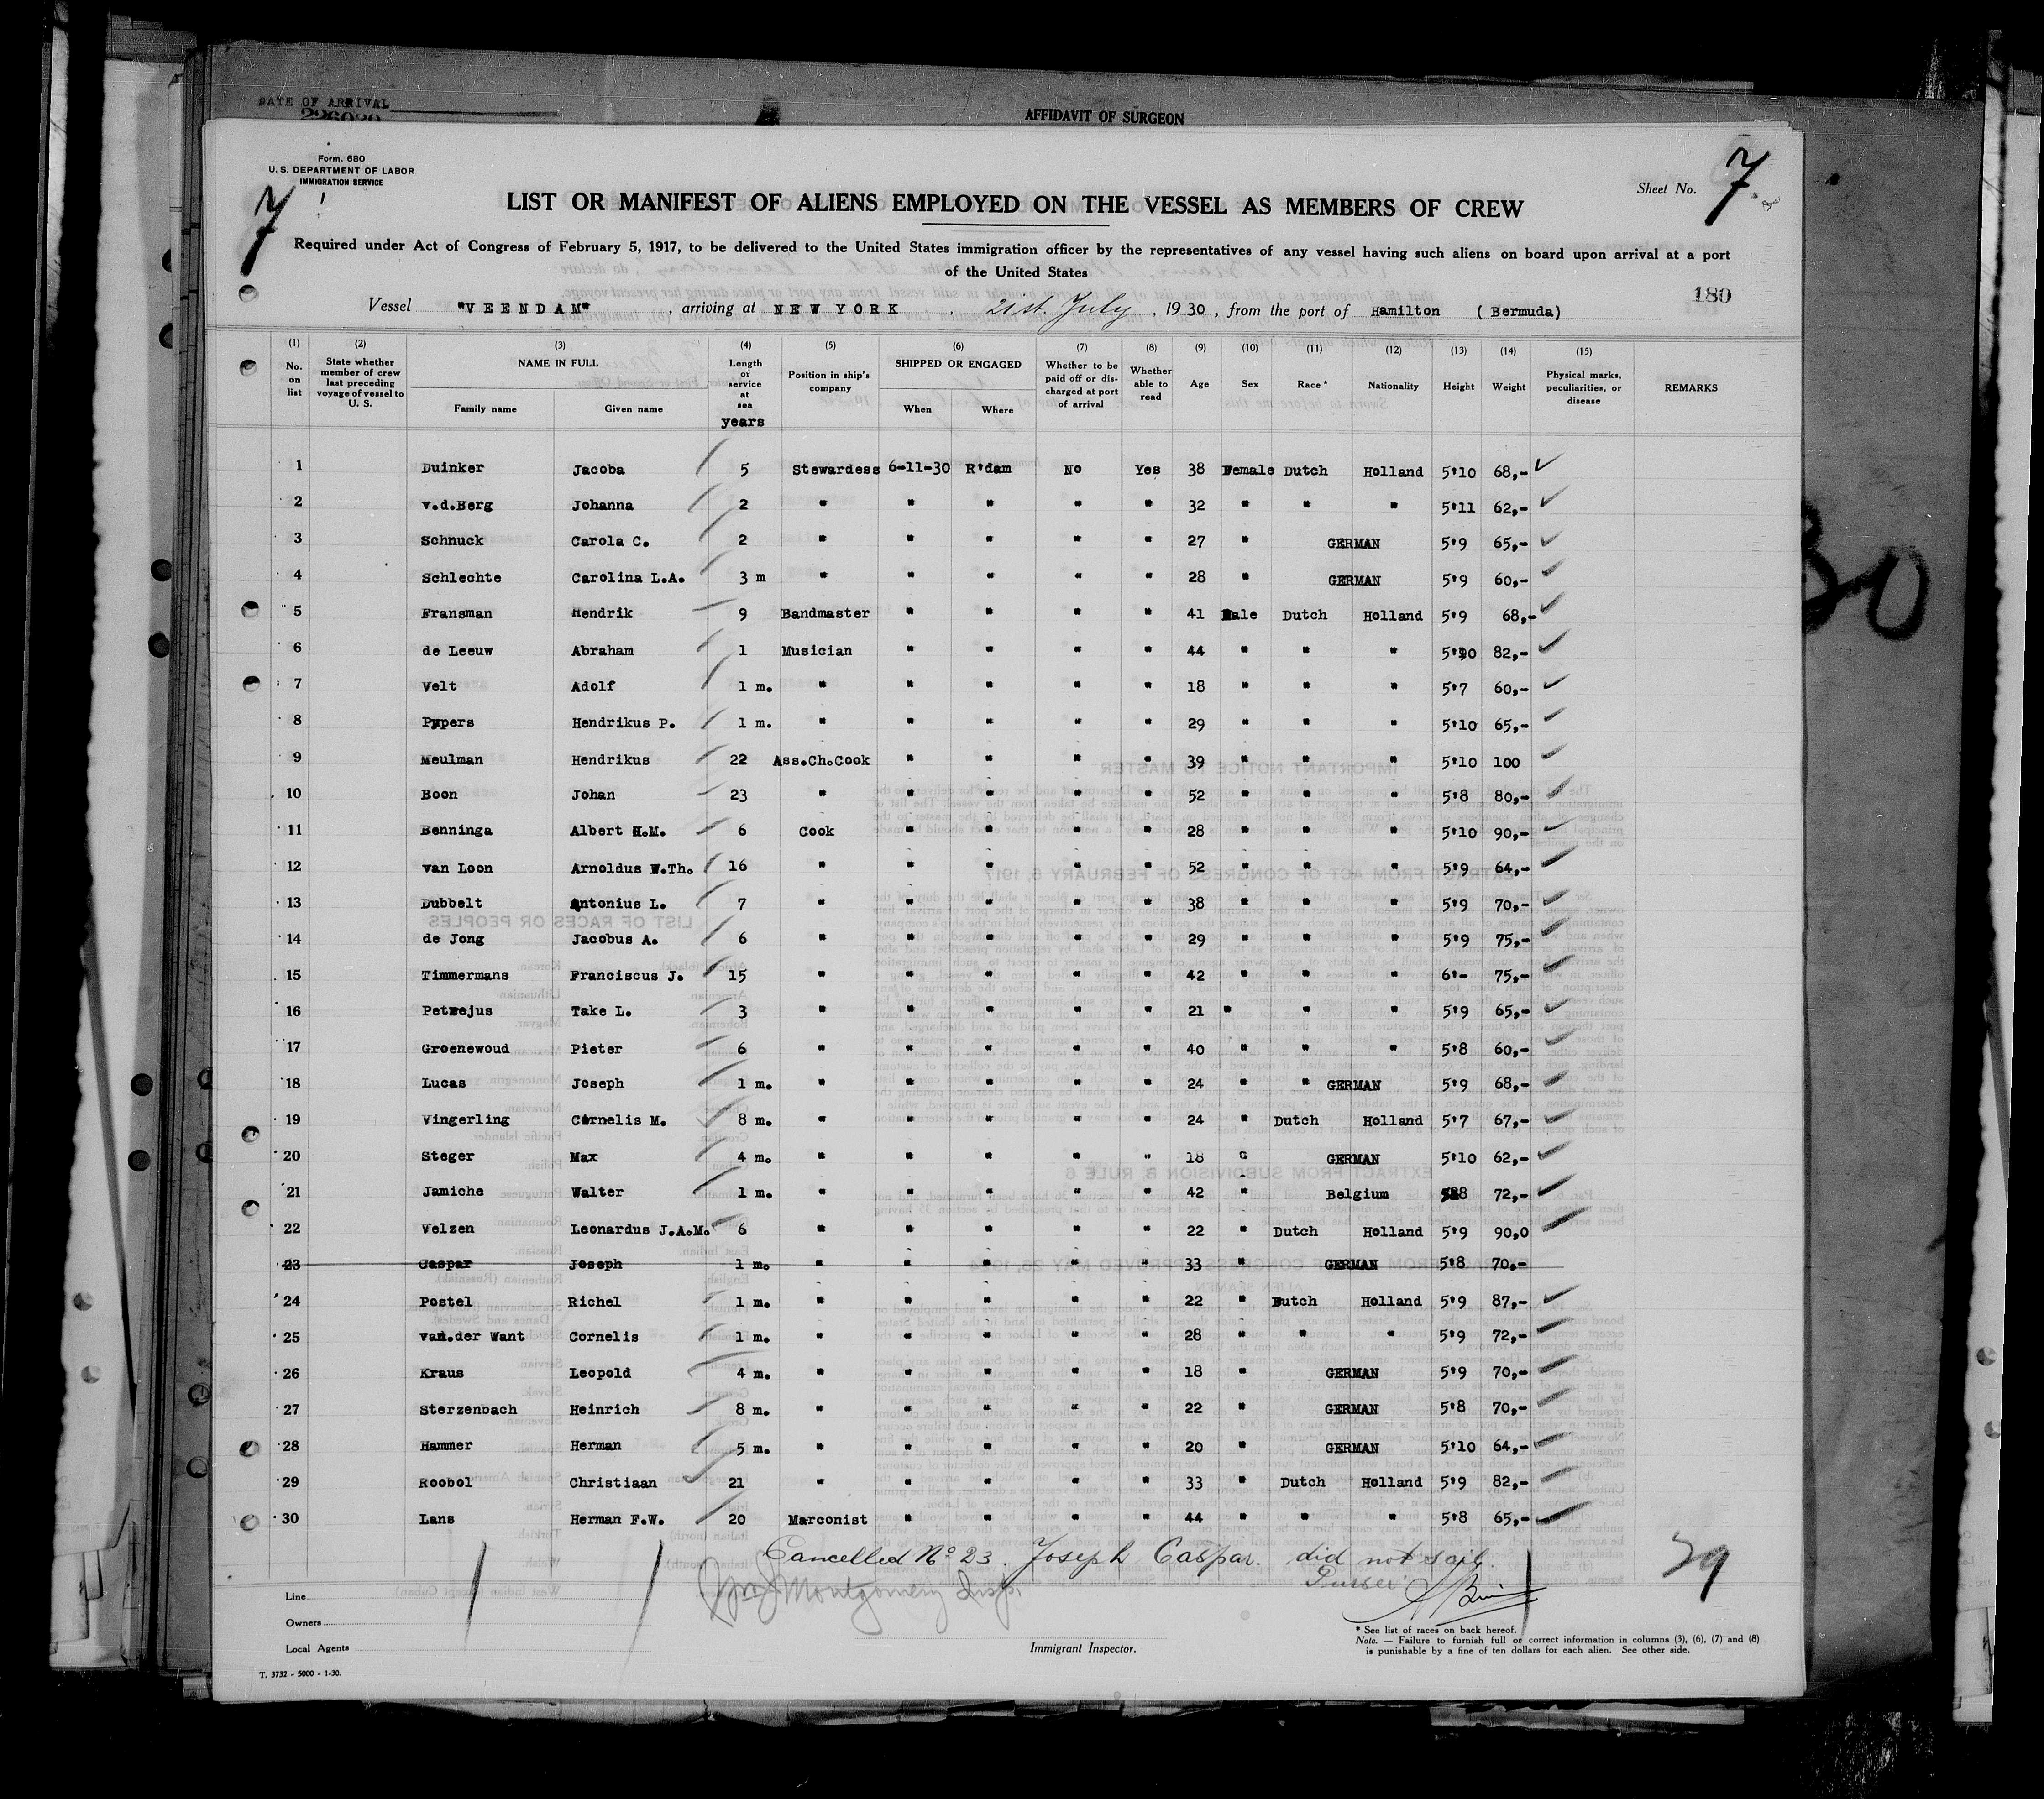 DATE OF ARRIVAL
226020
AFFIDAVIT OF SURGEON
Form. 680
U. S. DEPARTMENT OF LABOR
IMMIGRATION SERVICE
7
Sheet No. 7
LIST OR MANIFEST OF ALIENS EMPLOYED ON THE VESSEL AS MEMBERS OF CREW
Required under Act of Congress of February 5, 1917, to be delivered to the United States immigration officer by the representatives of any vessel having such aliens on board upon arrival at a port
of the United States
180
Vessel "VEENDAM" , arriving at NEW YORK , 21st. July , 1930 , from the port of Hamilton (Bermuda)
(1) (2) (3) (4) (5) (6) (7) (8) (9) (10) (11) (12) (13) (14) (15)
No. on list State whether member of crew last preceding voyage of vessel to U. S. NAME IN FULL Family name Given name Length of service at sea years Position in ship's company SHIPPED OR ENGAGED When Where Whether to be paid off or discharged at port of arrival Whether able to read Age Sex Race * Nationality Height Weight Physical marks, peculiarities, or disease REMARKS
1 Duinker Jacoba 5 Stewardess 6-11-30 R'dam No Yes 38 Female Dutch Holland 5'10 68,-
2 v.d.Berg Johanna 2 " " " " " 32 " " " 5'11 62,-
3 Schnuck Carola C. 2 " " " " " 27 " GERMAN 5'9 65,-
4 Schlechte Carolina L.A. 3 m " " " " " 28 " GERMAN 5'9 60,-
5 Fransman Hendrik 9 Bandmaster " " " " 41 Male Dutch Holland 5'9 68,-
6 de Leeuw Abraham 1 Musician " " " " 44 " " " 5'10 82,-
7 Velt Adolf 1 m. " " " " " 18 " " " 5'7 60,-
8 Pypers Hendrikus P. 1 m. " " " " " 29 " " " 5'10 65,-
9 Meulman Hendrikus 22 Ass.Ch.Cook " " " " 39 " " " 5'10 100
10 Boon Johan 23 " " " " " 52 " " " 5'8 80,-
11 Benninga Albert H.M. 6 Cook " " " " 28 " " " 5'10 90,-
12 van Loon Arnoldus W.Th. 16 " " " " " 52 " " " 5'9 64,-
13 Dubbelt Antonius L. 7 " " " " " 38 " " " 5'9 70,-
14 de Jong Jacobus A. 6 " " " " " 29 " " " 5'9 75,-
15 Timmermans Franciscus J. 15 " " " " " 42 " " " 6'- 75,-
16 Petrejus Take L. 3 " " " " " 21 " " " 5'9 65,-
17 Groenewoud Pieter 6 " " " " " 40 " " " 5'8 60,-
18 Lucas Joseph 1 m. " " " " " 24 " " GERMAN 5'9 68,-
19 Vingerling Cornelis M. 8 m. " " " " " 24 " Dutch Holland 5'7 67,-
20 Steger Max 4 m. " " " " " 18 " GERMAN 5'10 62,-
21 Jamiche Walter 1 m. " " " " " 42 " Belgium 5'8 72,-
22 Velzen Leonardus J.A.M. 6 " " " " " 22 " Dutch Holland 5'9 90,0
23 Caspar Joseph 1 m. " " " " " 33 " GERMAN 5'8 70,-
24 Postel Richel 1 m. " " " " " 22 " Dutch Holland 5'9 87,-
25 van.der Want Cornelis 1 m. " " " " " 28 " " " 5'9 72,-
26 Kraus Leopold 4 m. " " " " " 18 " GERMAN 5'9 70,-
27 Sterzenbach Heinrich 8 m. " " " " " 22 " GERMAN 5'8 70,-
28 Hammer Herman 5 m. " " " " " 20 " GERMAN 5'10 64,-
29 Roobol Christiaan 21 " " " " " 33 " Dutch Holland 5'9 82,-
30 Lans Herman F.W. 20 Marconist " " " " 44 " " " 5'8 65,-
Cancelled No 23. Joseph Caspar. did not sail.
Purser
29
Wm J Montgomery Insp.
Line
Owners
Local Agents
Immigrant Inspector.
* See list of races on back hereof.
Note. — Failure to furnish full or correct information in columns (3), (6), (7) and (8)
is punishable by a fine of ten dollars for each alien. See other side.
T. 3732 - 5000 - 1-30.